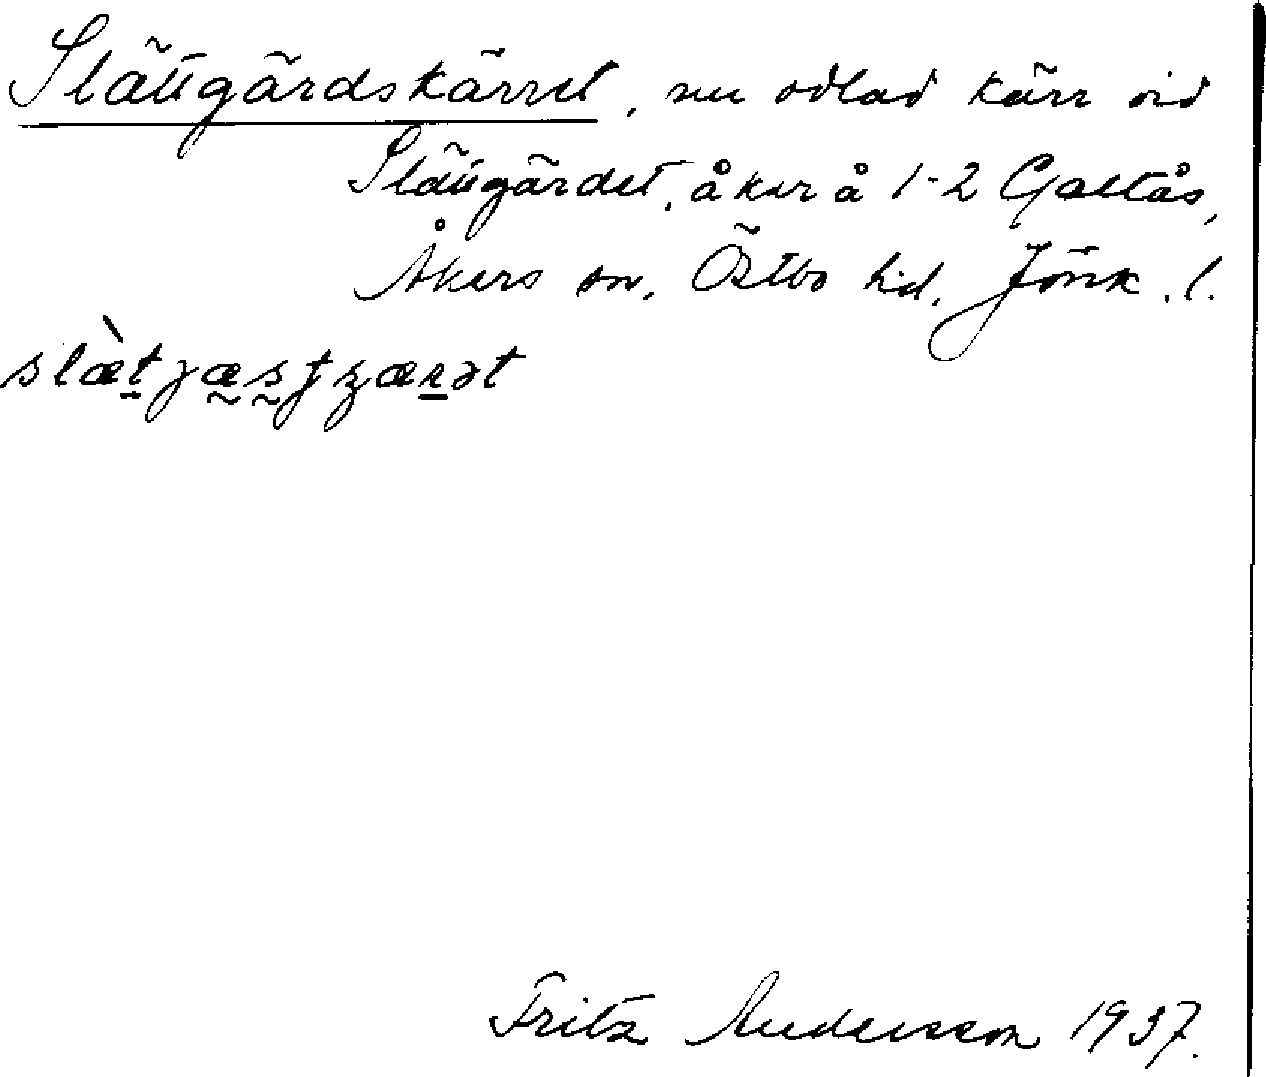 Slättgärdskärret, nu odlad kärr vid
Slättgärdet, åker å 1-2 Galtås,
Åkers sn, Östbo hd, Jönk. l.
Fritz Andersson 1937.